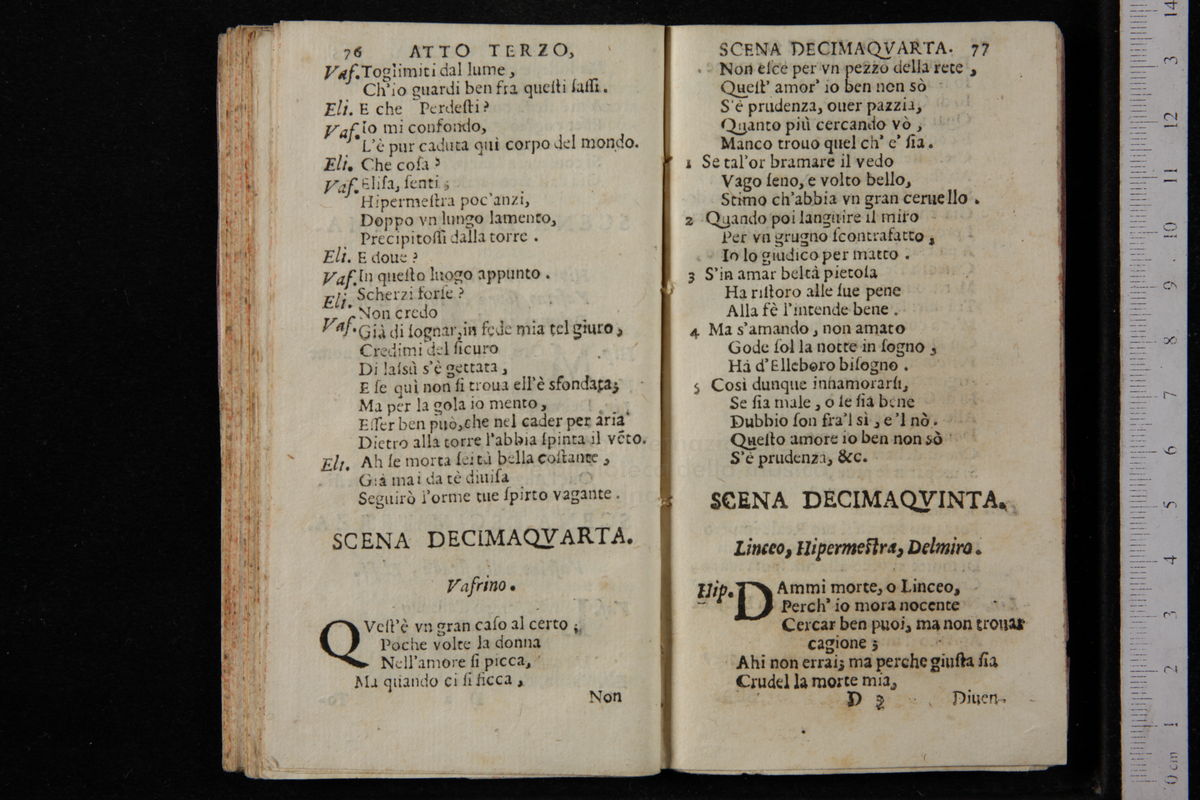 76 ATTO TERZO,
Vaf. Toglimiti dal lume,
Ch'io guardi ben fra questi sassi.
Eli. E che Perdesti?
Vaf. Io mi confondo,
L'è pur caduta qui corpo del mondo.
Eli. Che cosa?
Vaf. Elisa, senti;
Hipermestra poc'anzi,
Doppo vn lungo lamento,
Precipitossi dalla torre.
Eli. E doue?
Vaf. In questo luogo appunto.
Eli. Scherzi forse?
Non credo
Vaf. Già di sognar, in fede mia tel giuro,
Credimi del sicuro
Di lassù s'è gettata,
E se quì non si troua ell'è sfondata;
Ma per la gola io mento,
Esser ben può, che nel cader per aria
Dietro alla torre l'abbia spinta il vẽto.
Eli. Ah se morta sei tù bella costante,
Già mai da tè diuisa
Seguirò l'orme tue spirto vagante.
SCENA DECIMAQVARTA.
Vafrino.
QVest'è vn gran caso al certo;
Poche volte la donna
Nell'amore si picca,
Ma quando ci si ficca,
Non
SCENA DECIMAQVARTA. 77
Non esce per vn pezzo della rete,
Quest' amor' io ben non sò
S'è prudenza, ouer pazzia,
Quanto più cercando vò,
Manco trouo quel ch' e' sia.
1 Se tal'or bramare il vedo
Vago seno, e volto bello,
Stimo ch'abbia vn gran ceruello.
2 Quando poi languire il miro
Per vn grugno scontrafatto,
Io lo giudico per matto.
3 S'in amar beltà pietosa
Ha ristoro alle sue pene
Alla fè l'intende bene.
4 Ma s'amando, non amato
Gode sol la notte in sogno,
Hà d'Elleboro bisogno.
5 Così dunque innamorarsi,
Se sia male, o se sia bene
Dubbio son fra'l sì, e'l nò.
Questo amore io ben non sò
S'è prudenza, &c.
SCENA DECIMAQVINTA.
Linceo, Hipermestra, Delmiro.
Hip. DAmmi morte, o Linceo,
Perch' io mora nocente
Cercar ben puoi, ma non trouar
cagione;
Ahi non errai; ma perche giusta sia
Crudel la morte mia,
D 3 Diuen-